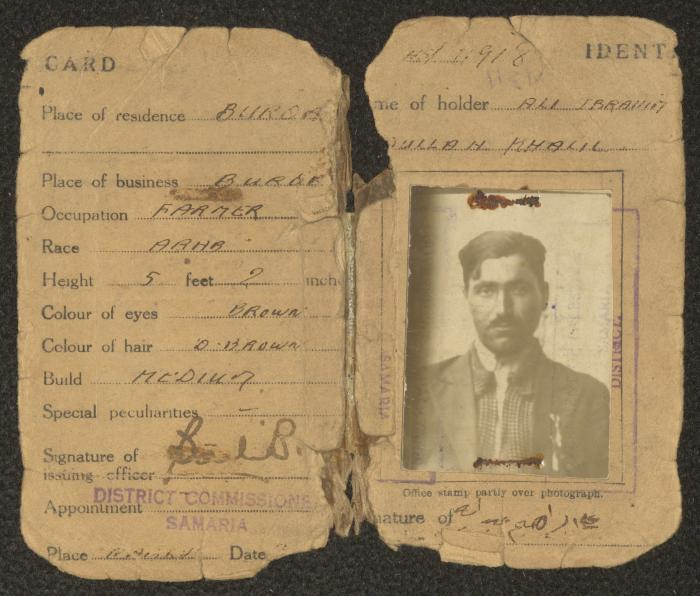 CARD
Place of residence
Place of business
Occupation FARMER
Race ARAB
Height 5 feet 2 inch
Colour of eyes BROWN
Colour of hair D. BROWN
Build MEDIUM
Special peculiarities –
Signature of
issuing officer
Appointment
DISTRICT COMMISSIONE
SAMARIA
Place Date
IDENT
me of holder ALI IBRAHIM
ULLAH KHALIL
DISTRICT
SAMARIA
Office stamp partly over photograph.
nature of